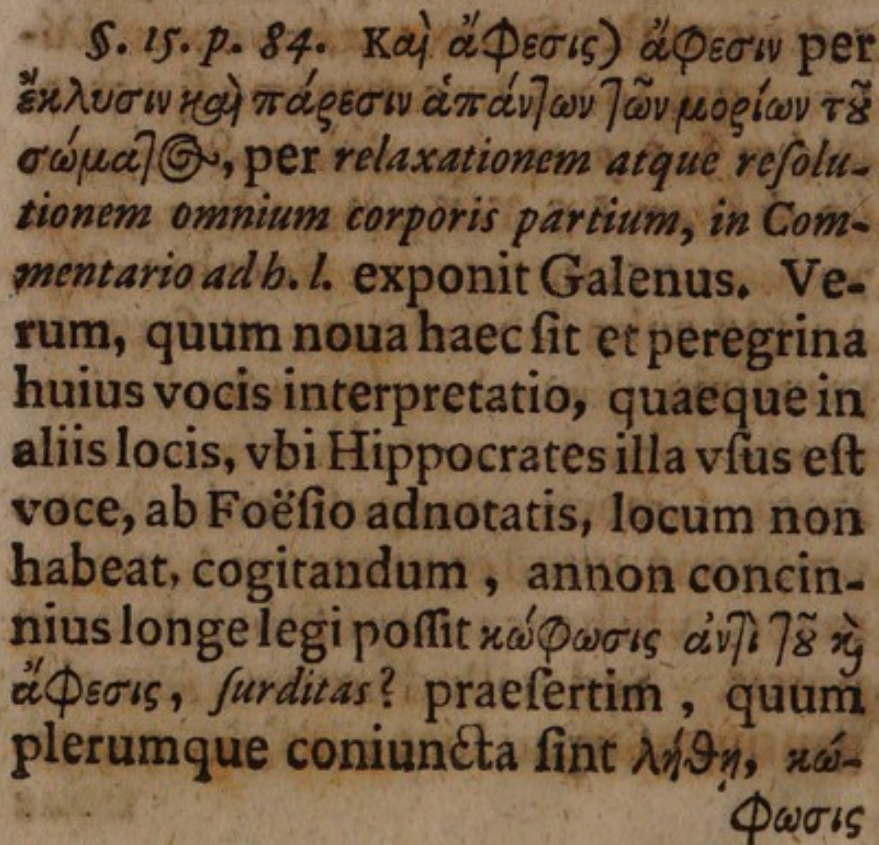 §. 15. p. 84. Καὶ ἄφεσις) ἄφεσιν per
ἔκλυσιν καὶ πάρεσιν ἁπάντων τῶν μορίων τοῦ
σώματος, per relaxationem atque reſolu-
tionem omnium corporis partium, in Com-
mentario ad h. l. exponit Galenus. Ve-
rum, quum noua haec ſit et peregrina
huius vocis interpretatio, quaeque in
aliis locis, vbi Hippocrates illa vſus eſt
voce, ab Foëſio adnotatis, locum non
habeat, cogitandum, annon concin-
nius longe legi poſſit κώφωσις ἀντὶ τοῦ καὶ
ἄφεσις, ſurditas? praeſertim, quum
plerumque coniuncta ſint λήθη, κώ-
φωσις